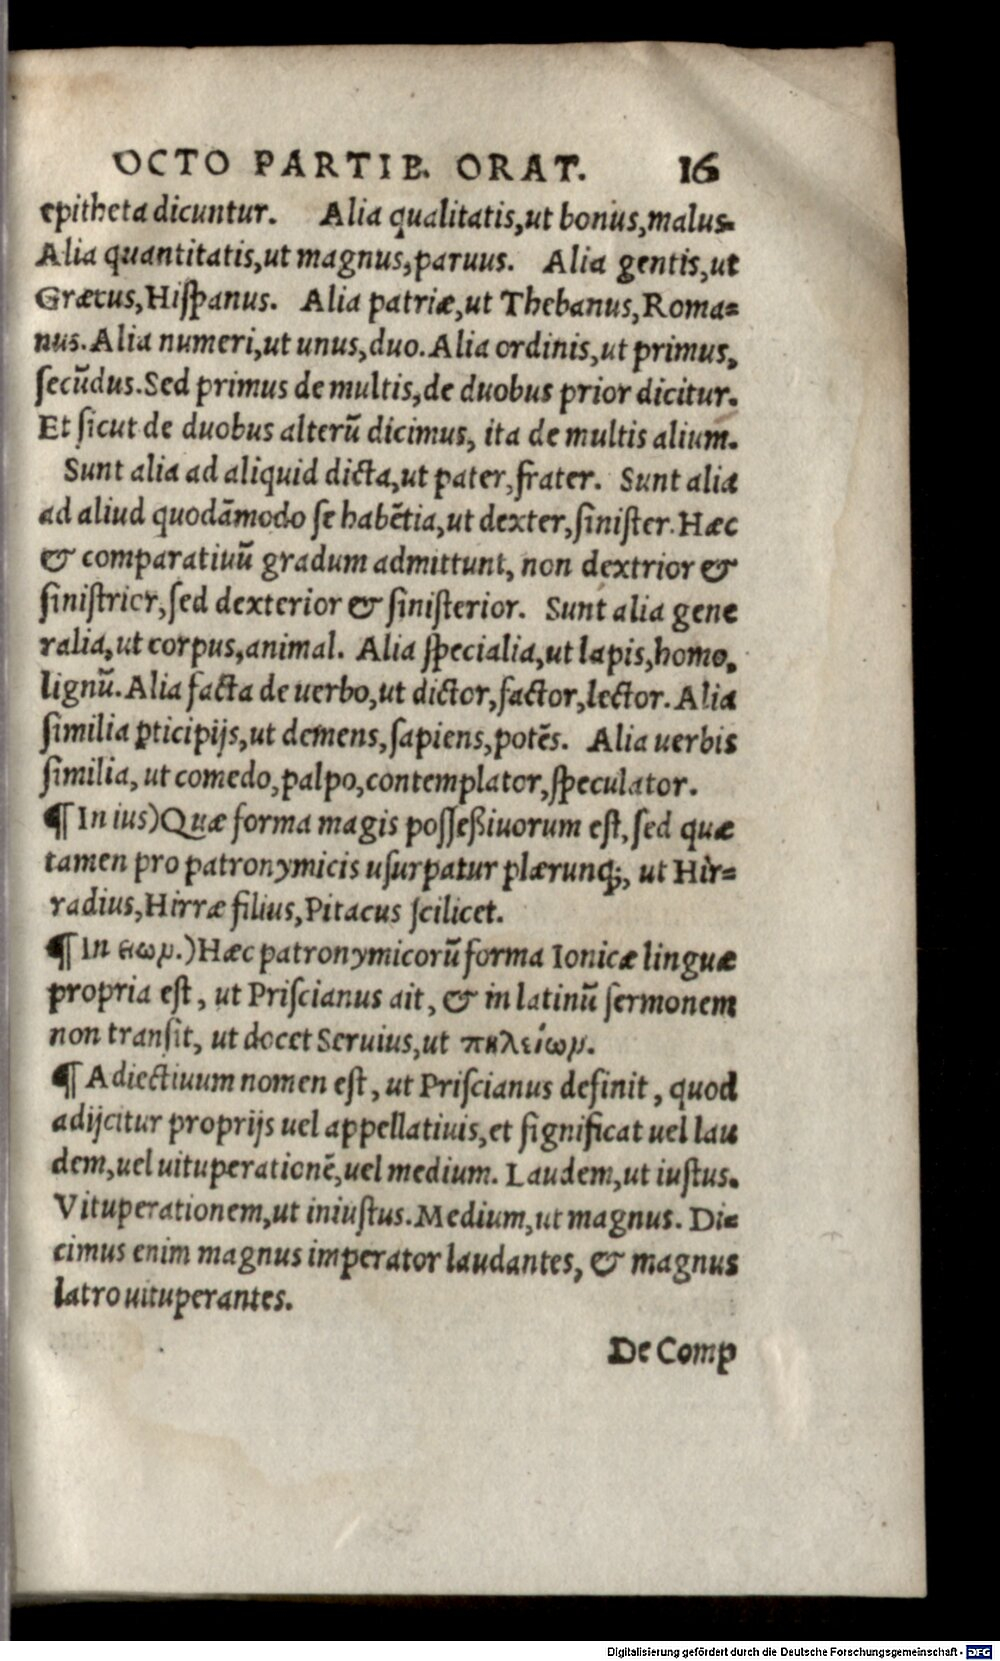 OCTO PARTIB. ORAT. 16
epitheta dicuntur. Alia qualitatis,ut bonus,malus.
Alia quantitatis,ut magnus,paruus. Alia gentis,ut
Græcus,Hiſpanus. Alia patriæ,ut Thebanus,Roma=
nus.Alia numeri,ut unus,duo.Alia ordinis,ut primus,
ſecūdus.Sed primus de multis,de duobus prior dicitur.
Et ſicut de duobus alterū dicimus, ita de multis alium.
Sunt alia ad aliquid dicta,ut pater,frater. Sunt alia
ad aliud quodāmodo ſe habētia,ut dexter,ſiniſter.Hæc
& comparatiuū gradum admittunt, non dextrior &
ſiniſtrior,ſed dexterior & ſiniſterior. Sunt alia gene
ralia,ut corpus,animal. Alia ſpecialia,ut lapis,homo,
lignū.Alia facta de uerbo,ut dictor,factor,lector.Alia
ſimilia ꝑticipijs,ut demens,ſapiens,potēs. Alia uerbis
ſimilia, ut comedo,palpo,contemplator,ſpeculator.
¶ In ius)Quæ forma magis poſſeßiuorum eſt,ſed quæ
tamen pro patronymicis uſurpatur plærunq;, ut Hir=
radius,Hirræ filius,Pitacus ſcilicet.
¶ In ειων.)Hæc patronymicorū forma Ionicæ linguæ
propria eſt, ut Priſcianus ait, & in latinū ſermonem
non tranſit, ut docet Seruius,ut πηλείων.
¶ Adiectiuum nomen eſt, ut Priſcianus definit, quod
adijcitur proprijs uel appellatiuis,et ſignificat uel lau
dem,uel uituperationē,uel medium. Laudem,ut iuſtus.
Vituperationem,ut iniuſtus.Medium,ut magnus. Di=
cimus enim magnus imperator laudantes, & magnus
latro uituperantes.
De Comp
Digitalisierung gefördert durch die Deutsche Forschungsgemeinschaft - DFG